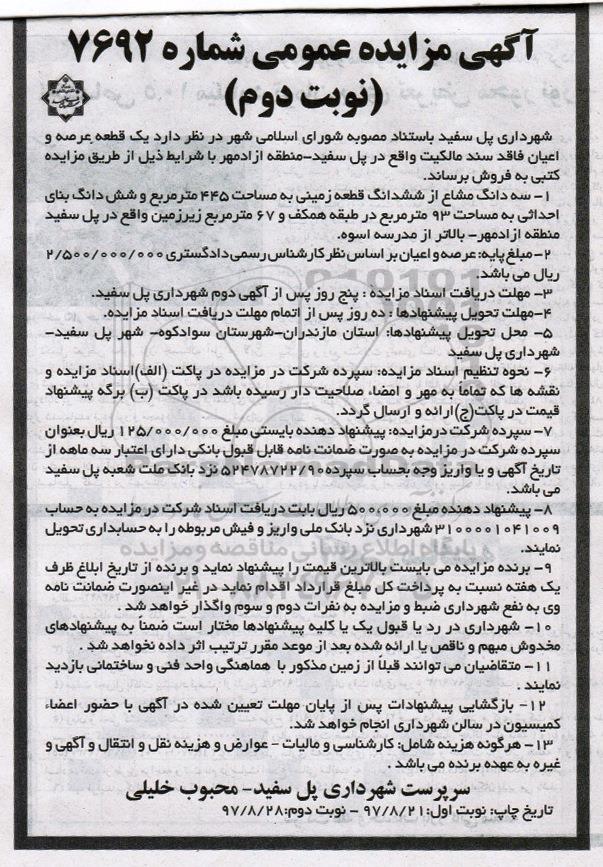 آگهی مزایده عمومی شماره ۷۶۹۲
(نوبت دوم)
شهرداری پل سفید باستناد مصوبه شورای اسلامی شهر در نظر دارد یک قطعه عرصه و
اعیان فاقد سند مالکیت واقع در پل سفید-منطقه ازادمهر با شرایط ذیل از طریق مزایده
کتبی به فروش برساند.
۱- سه دانگ مشاع از ششدانگ قطعه زمینی به مساحت ۴۴۵ مترمربع و شش دانگ بنای
احداثی به مساحت ۹۳ مترمربع در طبقه همکف و ۶۷ مترمربع زیرزمین واقع در پل سفید
منطقه ازادمهر- بالاتر از مدرسه اسوه.
۲- مبلغ پایه: عرصه و اعیان بر اساس نظر کارشناس رسمی دادگستری ۲/۵۰۰/۰۰۰/۰۰۰
ریال می باشد.
۳- مهلت دریافت اسناد مزایده : پنج روز پس از آگهی دوم شهرداری پل سفید.
۴-مهلت تحویل پیشنهادها : ده روز پس از اتمام مهلت دریافت اسناد مزایده.
۵- محل تحویل پیشنهادها: استان مازندران-شهرستان سوادکوه- شهر پل سفید-
شهرداری پل سفید
۶- نحوه تنظیم اسناد مزایده: سپرده شرکت در مزایده در پاکت (الف)اسناد مزایده و
نقشه ها که تماماً به مهر و امضاء صلاحیت دار رسیده باشد در پاکت (ب) برگه پیشنهاد
قیمت در پاکت(ج)ارائه و ارسال گردد.
۷- سپرده شرکت درمزایده: پیشنهاد دهنده بایستی مبلغ ۱۲۵/۰۰۰/۰۰۰ ریال بعنوان
سپرده شرکت در مزایده به صورت ضمانت نامه قابل قبول بانکی دارای اعتبار سه ماهه از
تاریخ آگهی و یا واریز وجه بحساب سپرده ۵۲۴۷۸۷۲۲/۹۰ نزد بانک ملت شعبه پل سفید
می باشد.
۸- پیشنهاد دهنده مبلغ ۵۰۰،۰۰۰ ریال بابت دریافت اسناد شرکت در مزایده به حساب
۳۱۰۰۰۰۱۰۴۱۰۰۹ شهرداری نزد بانک ملی واریز و فیش مربوطه را به حسابداری تحویل
نمایند.
۹- برنده مزایده می بایست بالاترین قیمت را پیشنهاد نماید و برنده از تاریخ ابلاغ ظرف
یک هفته نسبت به پرداخت کل مبلغ قرارداد اقدام نماید در غیر اینصورت ضمانت نامه
وی به نفع شهرداری ضبط و مزایده به نفرات دوم و سوم واگذار خواهد شد .
۱۰- شهرداری در رد یا قبول یک یا کلیه پیشنهادها مختار است ضمناً به پیشنهادهای
مخدوش مبهم و ناقص یا ارائه شده بعد از موعد مقرر ترتیب اثر داده نخواهد شد .
۱۱- متقاضیان می توانند قبلاً از زمین مذکور با هماهنگی واحد فنی و ساختمانی بازدید
نمایند .
۱۲- بازگشایی پیشنهادات پس از پایان مهلت تعیین شده در آگهی با حضور اعضاء
کمیسیون در سالن شهرداری انجام خواهد شد.
۱۳- هرگونه هزینه شامل: کارشناسی و مالیات - عوارض و هزینه نقل و انتقال و آگهی و
غیره به عهده برنده می باشد .
سرپرست شهرداری پل سفید- محبوب خلیلی
تاریخ چاپ: نوبت اول:۹۷/۸/۲۱ - نوبت دوم:۹۷/۸/۲۸